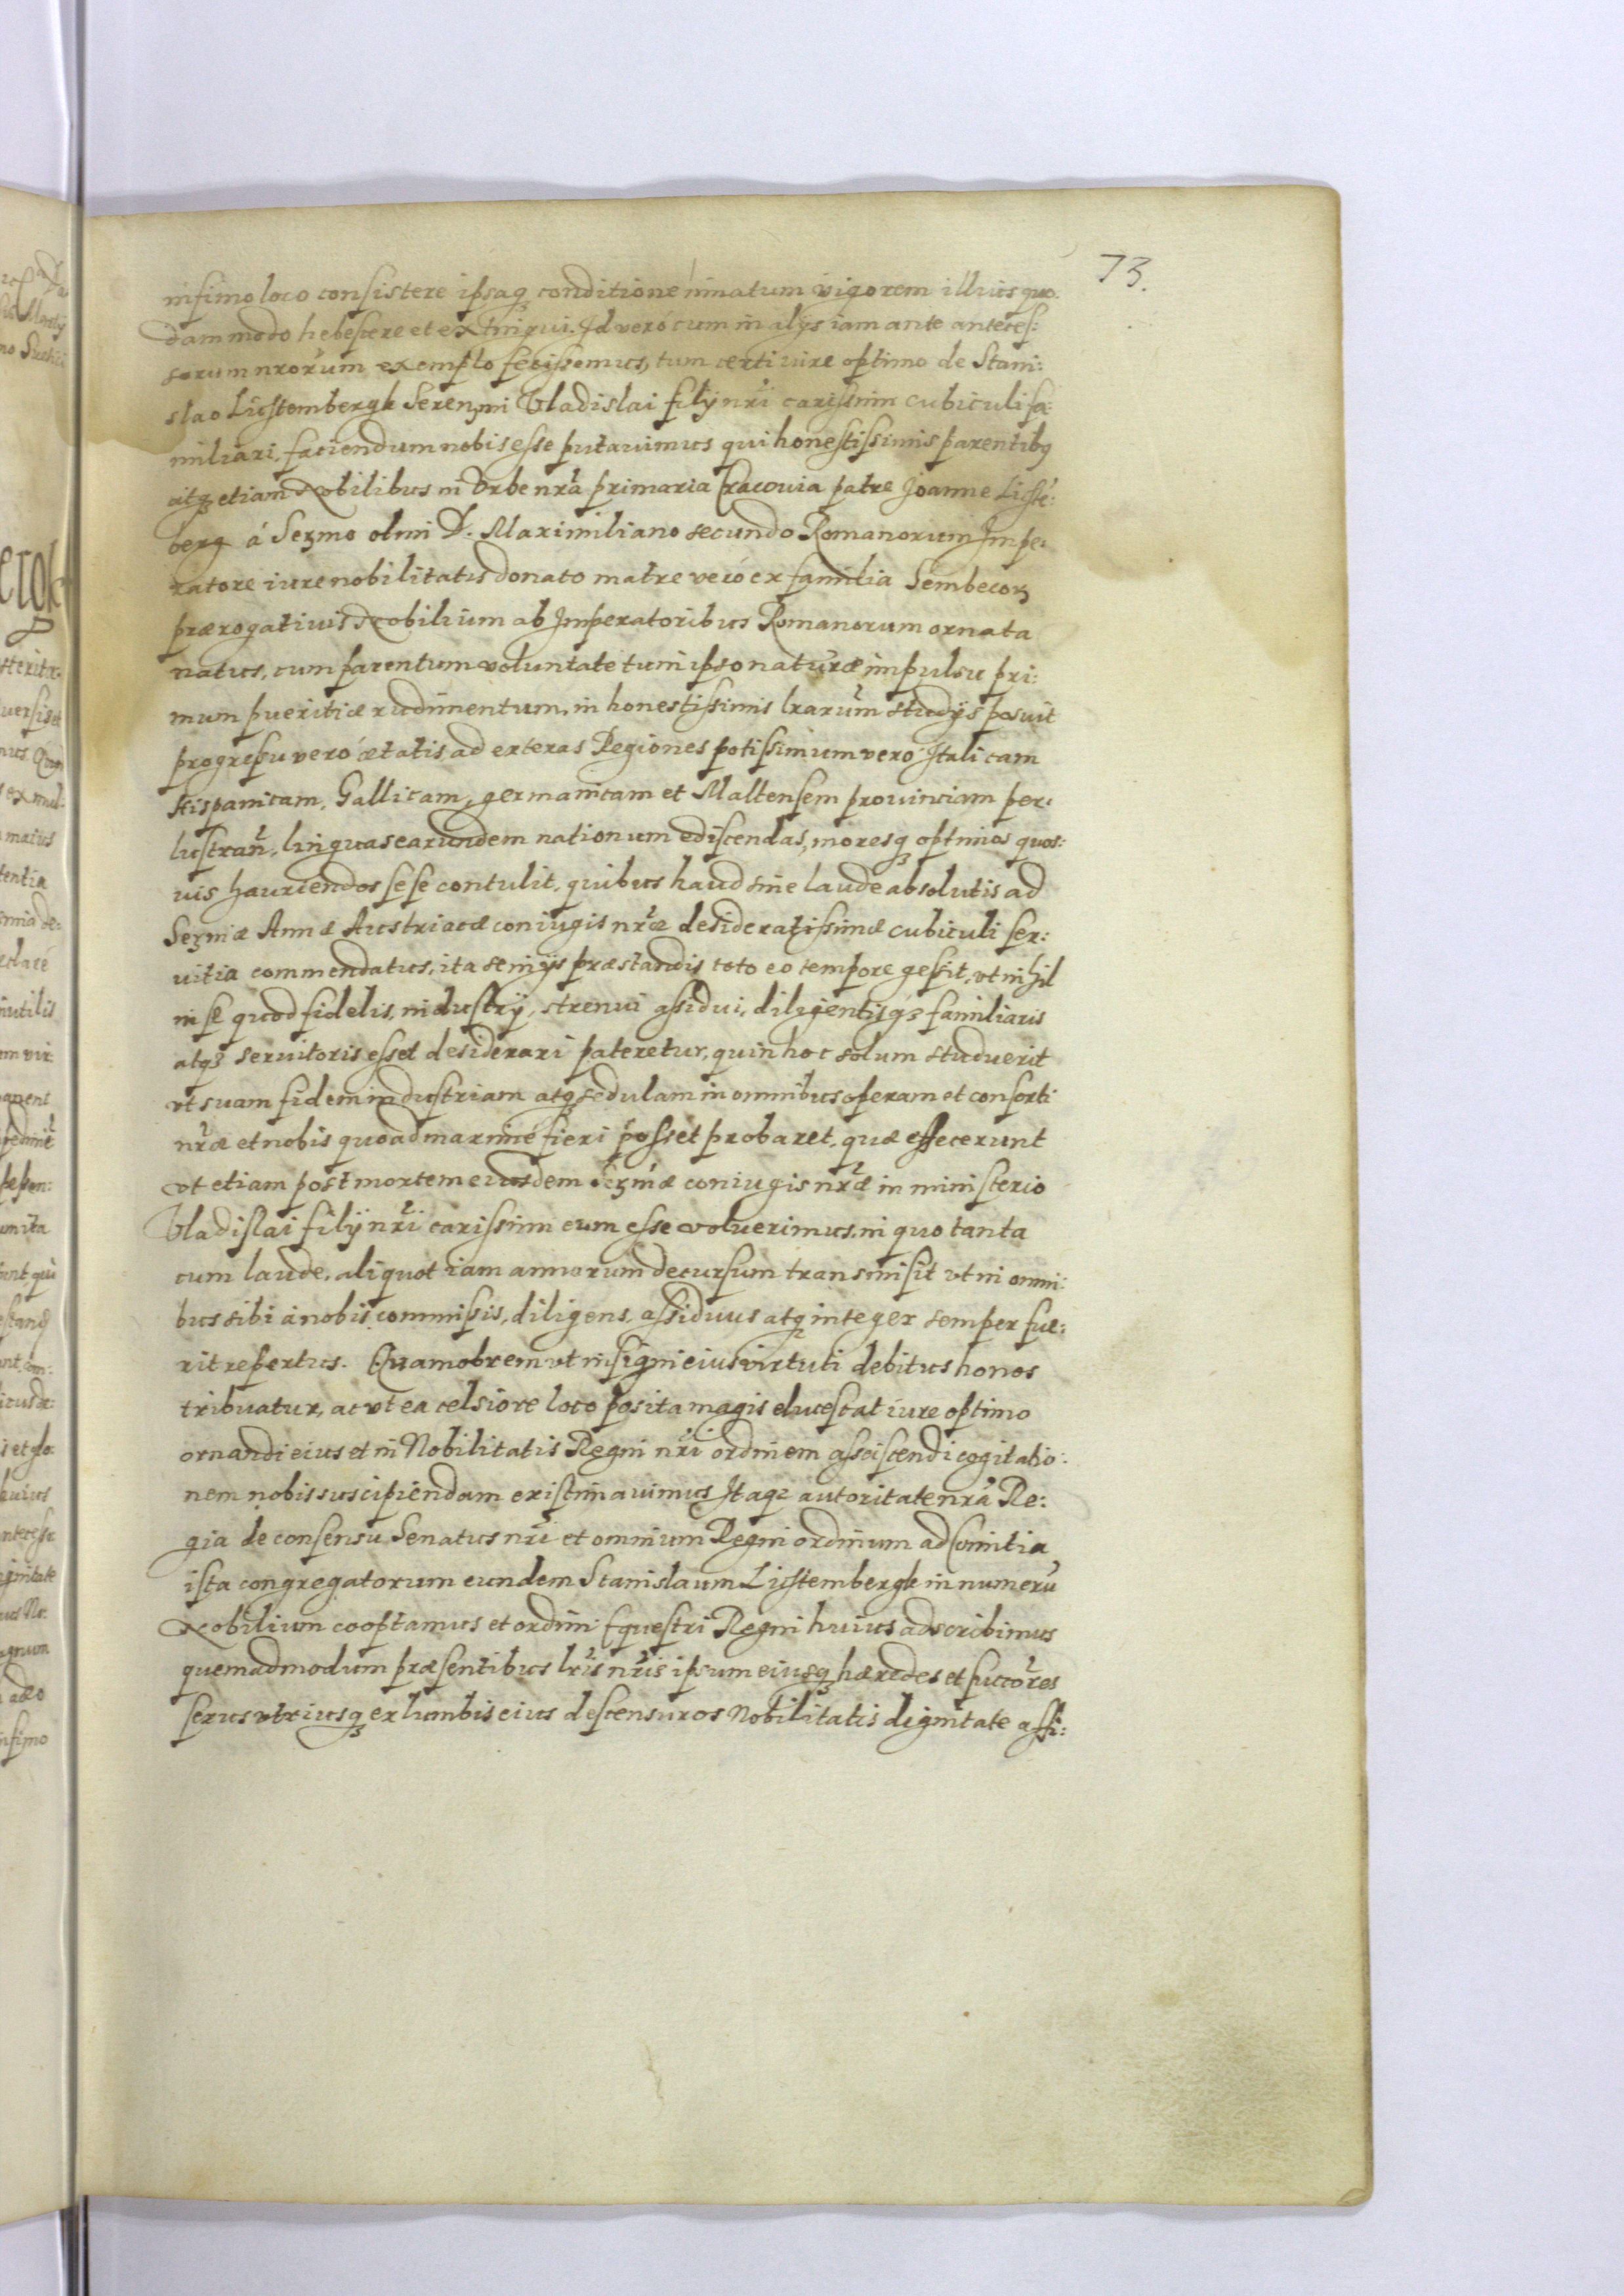 73.
infimo loco consistere ipsaq conditione innatum vigorem illius quo:
dammodo hebescere et extingui. Id veró cum in alijs iam ante anteces:
sorum nrorum exemplo fecissemus, tum certi iure optimo de Stani:
slao Lichtembergk Serenmi Vladislai filij nri carissimi cubiculi fa:
miliari, faciendum nobis esse putavimus qui honestissimis parentibq
atq etiam Nobilibus in Urbe nra primaria Cracovia patre Joanne Lichté:
berg á Sermo olim D. Maximiliano secundo Romanorum Impe:
ratore iure nobilitatis donato matre veró ex familia Sembecorz
prærogativis Nobilium ab Imperatoribus Romanorum ornata
natus, cum parentum voluntate tum ipso naturæ impulsu pri:
mum pueritiæ rudimentum, in honestissimis lrarum studijs posuit
progressu veró ætatis ad exteras Regiones potissimum veró Italicam
Hispanicam, Gallicam, germanicam et Maltensem provinciam per:
lustran, linguas earundem nationum ediscendas, moresq optimos quos:
vis hauriendos sese contulit, quibus haud sine laude absolutis ad
Sermæ Annæ Austriacæ coniugis nræ desideratissimæ cubiculi ser:
vitia commendatus, ita se in ijs præstandis toto eo tempore gessit, vt nihil
in se quod fidelis, industrij, strenui assidui, diligentisq familiaris
atq servitoris esset desiderari pateretur, quin hoc solum studuerit
vt suam fidem industriam atq sedulam in omnibus operam et consorti
nræ et nobis quoad maximé fieri posset probaret, quæ effecerunt
vt etiam post mortem eiusdem Sermæ coniugis nræ in ministerio
Vladislai filij nri carissimi eum esse voluerimus, in quo tanta
cum laude, aliquot iam annorum decursum transmisit vt in omni:
bus sibi a nobis commissis, diligens, assiduus atq integer semper fue:
rit repertus. Quamobrem vt insigni eius virtuti debitus honos
tribuatur, ac vt ea celsiore loco posita magis elucescat iure optimo
ornandi eius et in Nobilitatis Regni nri ordinem assciscendi cogitatio:
nem nobis suscipiendam existimavimus Itaq autoritate nra Re:
gia de consensu Senatus nri et omnium Regni ordinum ad Comitia
ista congregatorum eundem Stanislaum Lichtembergk in numerú
Nobilium cooptamus et ordini Equestri Regni huius adscribimus
quemadmodum præsentibus lris nris ipsum eiusq hæredes et succores
sexus vtriusq ex lumbis eius descensuros Nobilitatis dignitate affi: